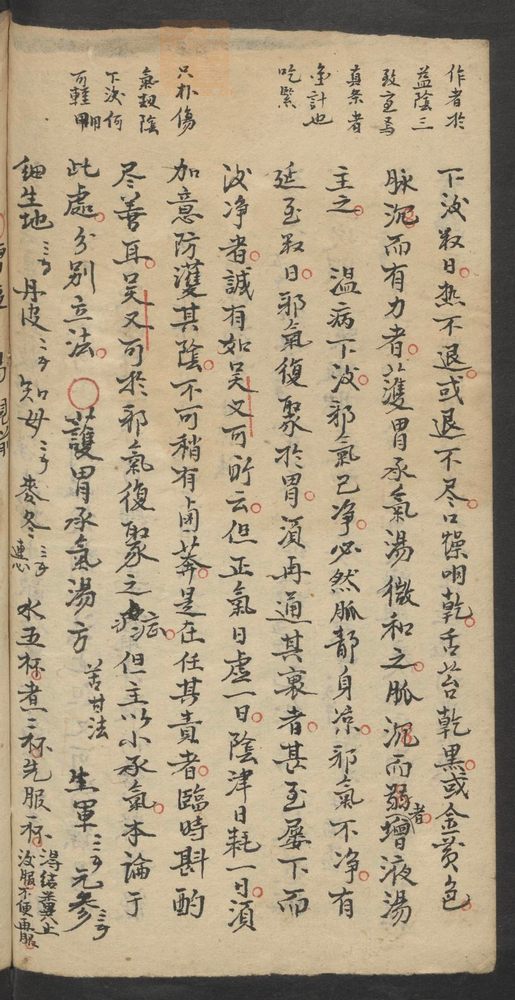 作者於
益陰三
致意焉
真案者
金計也
吃緊
只朴傷
氣劫陰
下後何
可輕用
下後數日熱不退或退不尽口燥咽乾舌苔乾黑或金黃色
脉沉而有力者護胃承氣湯微和之脉沉而弱者增液湯
主之　温病下後邪氣已净必然脉靜身凉邪氣不净有
延至數日邪氣復聚於胃須再通其裏者甚至屡下而
後净者誠有如吴又可所云但正氣日虚一日陰津日耗一日須
加意防護其陰不可稍有鹵莽是在任其責者臨時斟酌
尽善耳吴又可於邪氣復聚之症但主以小承氣本論于
此處分別立法○護胃承氣湯方　苦甘法　生軍三〻元參三〻
細生地三〻丹皮二〻知母二〻麥冬三〻連心　水五杯煮二杯先服一杯得結糞止後服不便再服